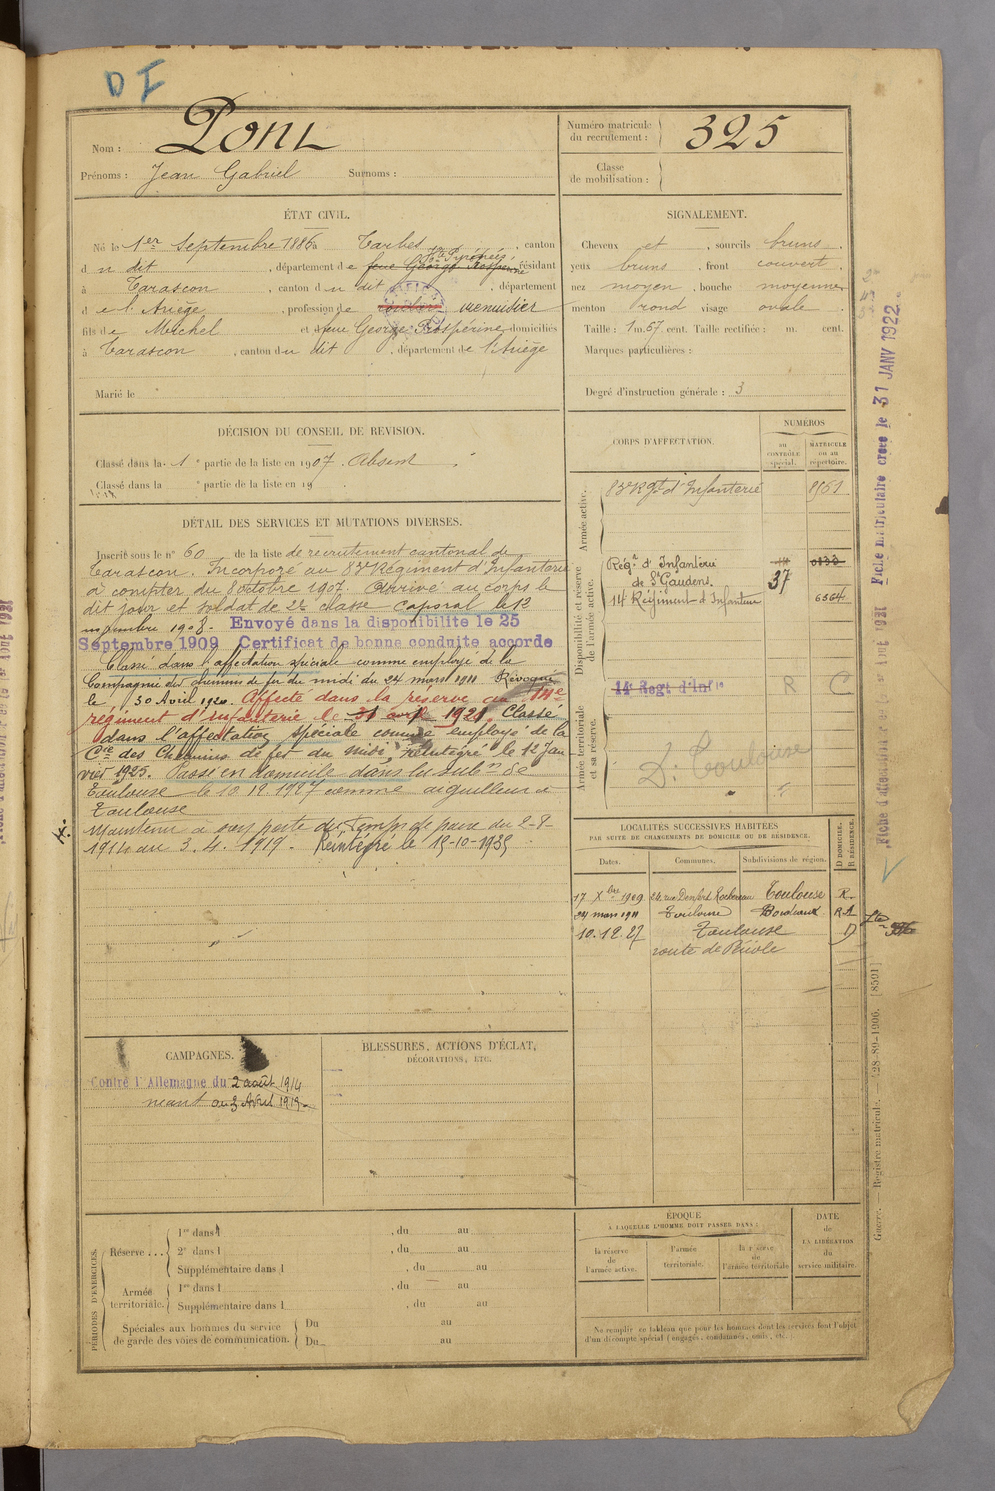 D I
Nom : Pont
Prénoms : Jean Gabriel Surnoms :
Numéro matricule du recrutement : 325
Classe de mobilisation :
ÉTAT CIVIL.
Né le 1er Septembre 1886 à Tarbes, canton
d u dit, département de Htes Pyrénées, résidant
feue George Prospérine
à Tarascon, canton du dit, département
de l'Ariège, profession de menuisier
fils de Michel et de feue George Prospérine domiciliés
à Tarascon, canton du dit, département de l'Ariège
Marié le
SIGNALEMENT.
Cheveux et, sourcils bruns.
yeux bruns, front couvert.
nez moyen, bouche moyenne
menton rond visage ovale.
Taille : 1m.57 cent. Taille rectifiée : m. cent.
Marques particulières :
Degré d'instruction générale : 3
DÉCISION DU CONSEIL DE REVISION.
Classé dans la 1e partie de la liste en 1907. Absent.
Classé dans la e partie de la liste en 19
DÉTAIL DES SERVICES ET MUTATIONS DIVERSES.
Inscrit sous le n° 60 de la liste de recrutement cantonal de
Tarascon. Incorporé au 83e Régiment d'Infanterie
à compter du 8 octobre 1907. Arrivé au corps le
dit jour et soldat de 2e classe caporal le 12
novembre 1908. Envoyé dans la disponibilite le 25
Septembre 1909 Certificat de bonne conduite accorde
Classé dans l'affectation spéciale comme employé de la
Compagnie des chemins de fer du midi du 24 mars 1911 Révoqué
le 30 Avril 1920. Affecté dans la réserve au 14e
régiment d'infanterie le 31 1921. Classé
dans l'affectation spéciale comme employé de la
Cie des Chemins de fer du Midi, Réintégré le 12 Jan
vier 1925. Passé en domicile dans la subon de
Toulouse le 10.12.1927 comme aiguilleur à
Toulouse
Maintenu à son poste du temps de paix du 2-8-
1914 au 3.4.1919. Réintégré le 15-10-1935
CORPS D'AFFECTATION.
NUMÉROS
au CONTRÔLE spécial.
MATRICULE ou au répertoire.
Armée active.
83e Rgt d'Infanterie 8951
Disponibilité et réserve de l'armée active.
Régnt d'Infanterie
de St Gaudens. 37
14e Régiment d'Infanterie 6564
Armée territoriale et sa réserve.
14e Regt d'Infie R C
D. Toulouse
LOCALITÉS SUCCESSIVES HABITÉES
PAR SUITE DE CHANGEMENTS DE DOMICILE OU DE RÉSIDENCE.
D DOMICILE. R RÉSIDENCE.
Dates. Communes. Subdivisions de région.
17 Xbre 1909 24 rue Denfert Rochereau Toulouse R.
24 mars 1911 Toulouse Bordeaux R.A
10.12.27 Toulouse D
route de
CAMPAGNES.
Contre l'Allemagne du 2 août 1914
au 3 Avril 1919.
BLESSURES, ACTIONS D'ÉCLAT,
DÉCORATIONS, ETC.
PÉRIODES D'EXERCICES.
Réserve ... 1re dans l , du au
2e dans l , du au
Supplémentaire dans l , du au
Armée territoriale. 1re dans l , du au
Supplémentaire dans l , du au
Spéciales aux hommes du service de garde des voies de communication. Du au
Du au
ÉPOQUE
À LAQUELLE L'HOMME DOIT PASSER DANS :
la réserve de l'armée active.
l'armée territoriale.
la réserve de l'armée territoriale
DATE DE LA LIBÉRATION du service militaire.
Ne remplir ce tableau que pour les hommes dont les services font l'objet
d'un décompte spécial (engagés, condamnés, omis, etc.)
Fiche matriculaire creee le 31 JANV 1922
Guerre. — Registre matricule. — 128-89-1906. [8591]